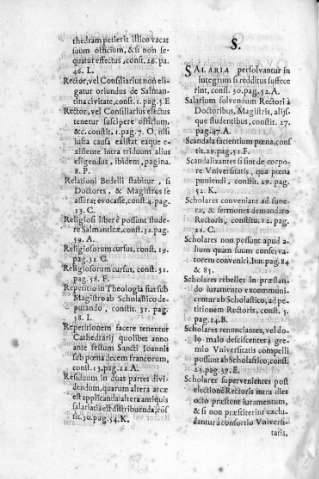 thedram petierit illico vacat
suum officium, & si non se-
quatur effectus, const. 26. pa.
46. L.
Rector, vel Consiliarius non eli-
gatur oriundus de Salman-
tina civitate, const. 1. pag. 5 E
Rector, vel Consiliarius electus
tenetur suscipere officium,
&c. constit. 1. pag. 7. O. nisi
iusta causa existat eaque e-
xistente intra triduum alius
eligendus, ibidem, pagina.
8. F.
Relationi Bedelli stabitur, si
Doctores, & Magistres se
asserat; evocasse, const. 4. pag.
13. C.
Religiosi liberè possint stude-
re Salmanticæ, const. 32. pag.
59. A.
Religiosorum cursus, const. 29.
pag. 51 G.
Religiosorum cursus, const. 31.
pag. 58. F.
Repetitio in Theologia fiat sub
Magistro ab Scholastico de-
putando, constit. 31. pag.
58. I.
Repetitionem facere tenentur
Cathedrarij quolibet anno
ante festum Sancti Joannis
sub pœna decem francorum,
const. 13. pag. 22. A.
Residuum in duas partes divi-
dendum, quarum altera arcæ
est applicanda altera antiquis
salariatis est distribuenda, cōs
tit. 30. pag. 54. K.
S.
SALARIA persolvantur in
integrum si redditus suffece
rint, const. 30. pag. 52. A.
Salarium solvendum Rectori à
Doctoribus, Magistris, alijs-
que studentibus, constit. 27.
pag. 47. A.
Scandala facientium pœna, cons
tit. 28. pag. 51. F.
Scandalizantes si sint de corpo-
re Vniversitatis, qua pœna
puniendi, constit. 29. pag.
52. K.
Scholares conveniant ad fune-
ra, & sermones demandato
Rectoris, constit. 12. pag.
21. C.
Scholares non possunt apud a-
lium quam suum conserva-
torem conveniri. hun pag. 84
& 85.
Scholares rebelles in præstan-
do iuramento excommuni-
centur ab Scholastico, ad pe-
titionem Rectoris, constit. 5.
pag. 14. B.
Scholares renunciantes, vel do-
lo malo desciscentes à gre-
mio Vniversitatis compelli
possunt ab Scholastico, const.
23. pag. 39. E.
Scholares supervenientes post
electionē Rectoris intra illos
octo præstent iuramentum,
& si non præstiterint exclu-
dantur à consortio Vniversi-
tatis,